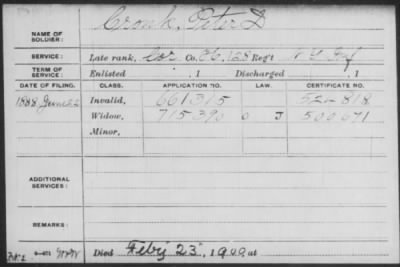 NAME OF SOLDIER: Cronk, Peter D
SERVICE: Late rank, Cor Co. 128 Reg't N.Y. Inf
TERM OF SERVICE: Enlisted , 1 Discharged , 1
DATE OF FILING. CLASS. APPLICATION NO. LAW. CERTIFICATE NO.
1888 June 22 Invalid, 661315 521818
Widow, 715390 O J 500671
Minor,
ADDITIONAL SERVICES:
REMARKS:
Died Feby 23, 1900, at